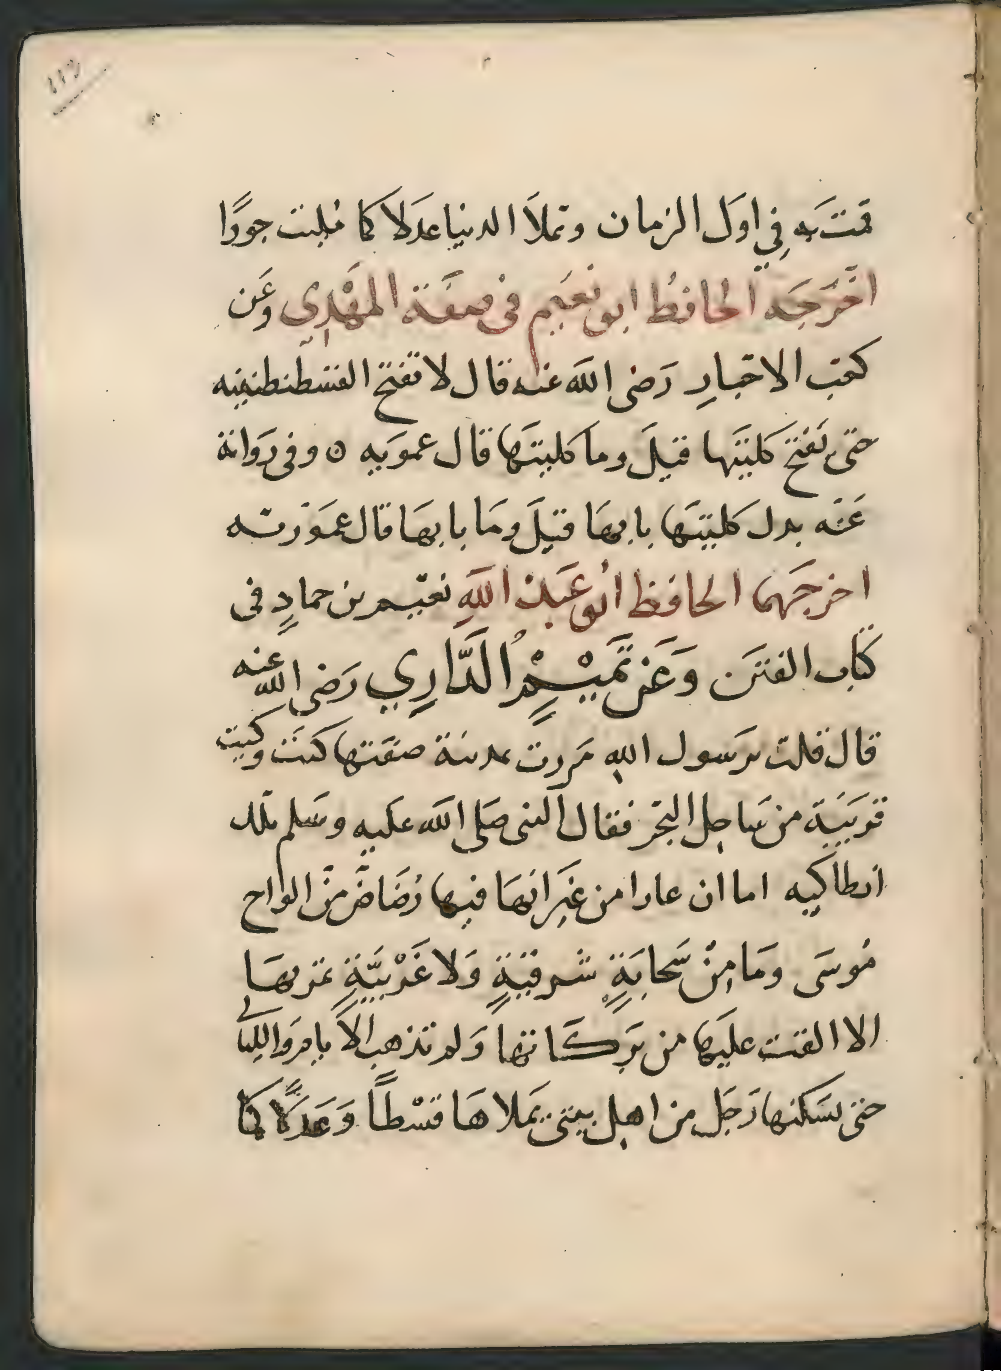 ١١٣
قمت به في اول الزمان وتملا الدنيا عدلا كما ملئت جورًا
اخرجه الحافظ ابو نعيم فى صفة المهدي وعن
كعب الاحبار رضى الله عنه قال لا تفتح القسطنطينيه
حتى تفتح كليتها قيل وما كليتها قال عمويه ٥ وفى رواية
عنه بدل كليتها بابها قيل وما بابها قال عموريه
اخرجهما الحافظ ابو عبد الله نعيم بن حماد فى
كتاب الفتن وعن تميم الداري رضى الله عنه
قال قلت يرسول الله مررت بمدينة صفتها كيت وكيت
قريبة من ساحل البحر فقال النبى صلى الله عليه وسلم تلك
انطاكيه اما ان غارا من غيرانها فيها رضاض من الواح
موسى وما من سحابة شرقية ولا غربية تمر بها
الا القت عليها من بركاتها ولم تذهب الايام والليالي
حتى يسكنها رجل من اهل بيتى يملاها قسطا وعدلا كما